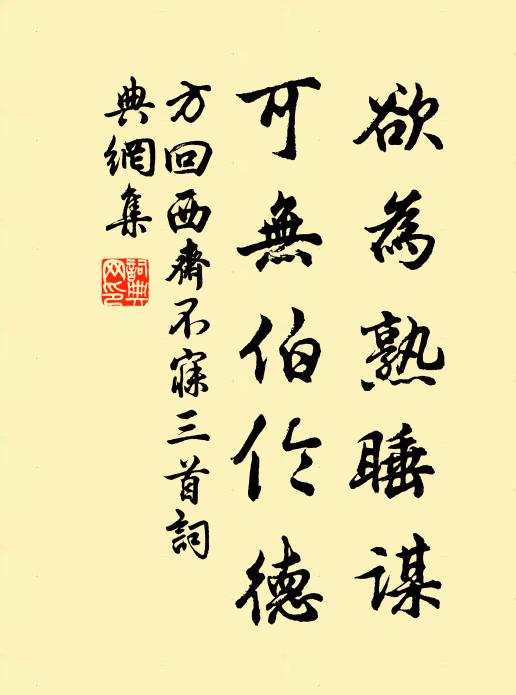 欲為熟睡謀
可無伯伦德
方回西齋不寐三首詞
典網集
詞典
网印